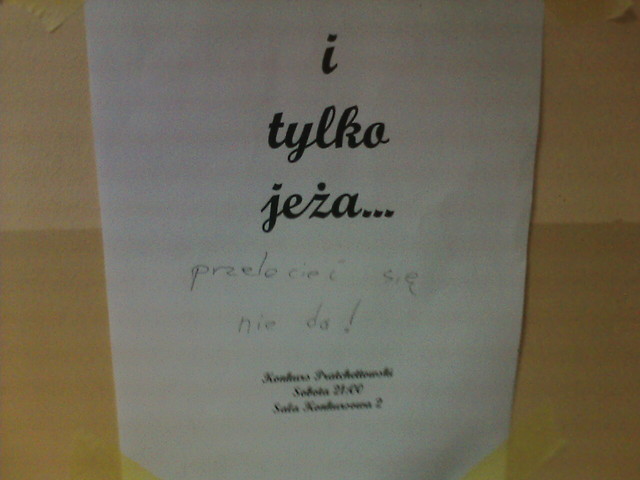 i
tylko
jeża...
przelecieć się
nie da!
Konkurs Pratchettowski
Sobota 21:00
Sala Konkursowa 2